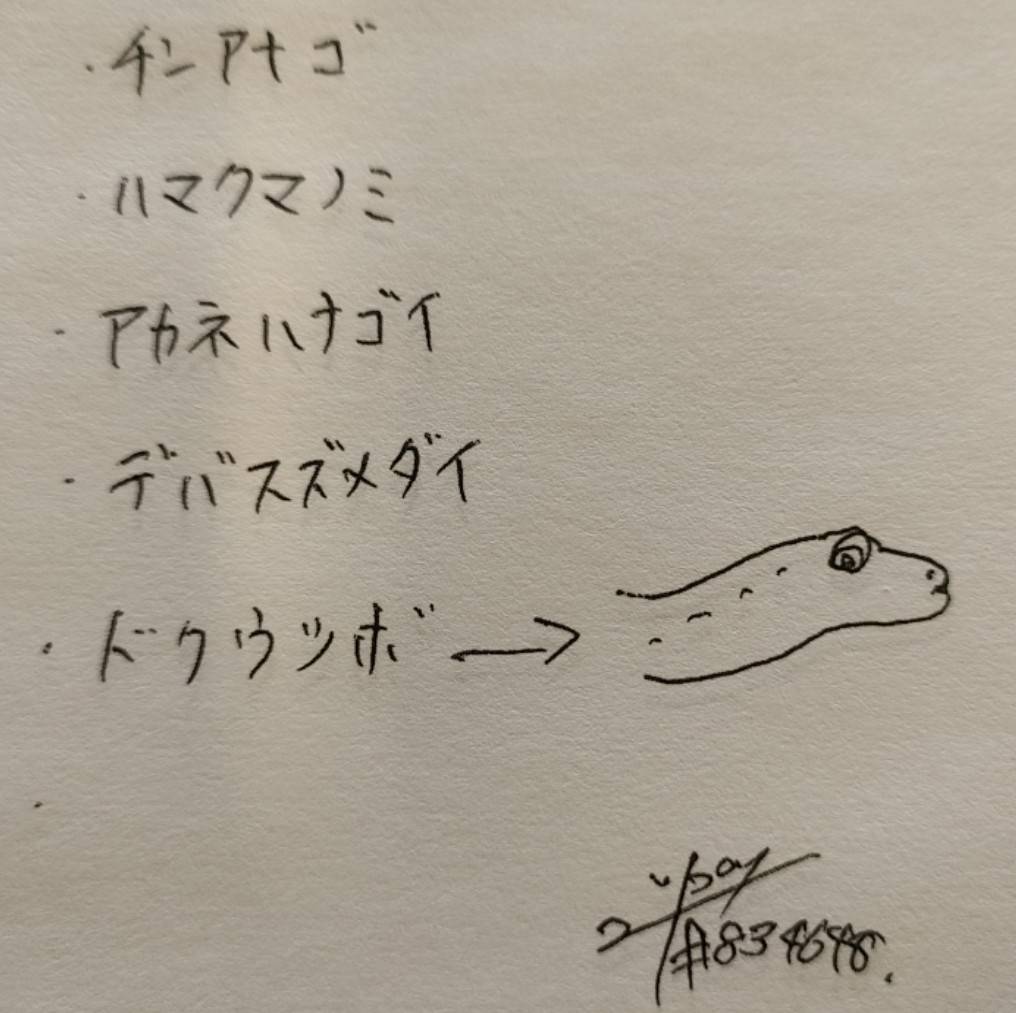 ・チンアナゴ
・ハマクマノミ
・アカネハナゴイ
・デバスズメダイ
・ドクウツボ→
・
#834648.